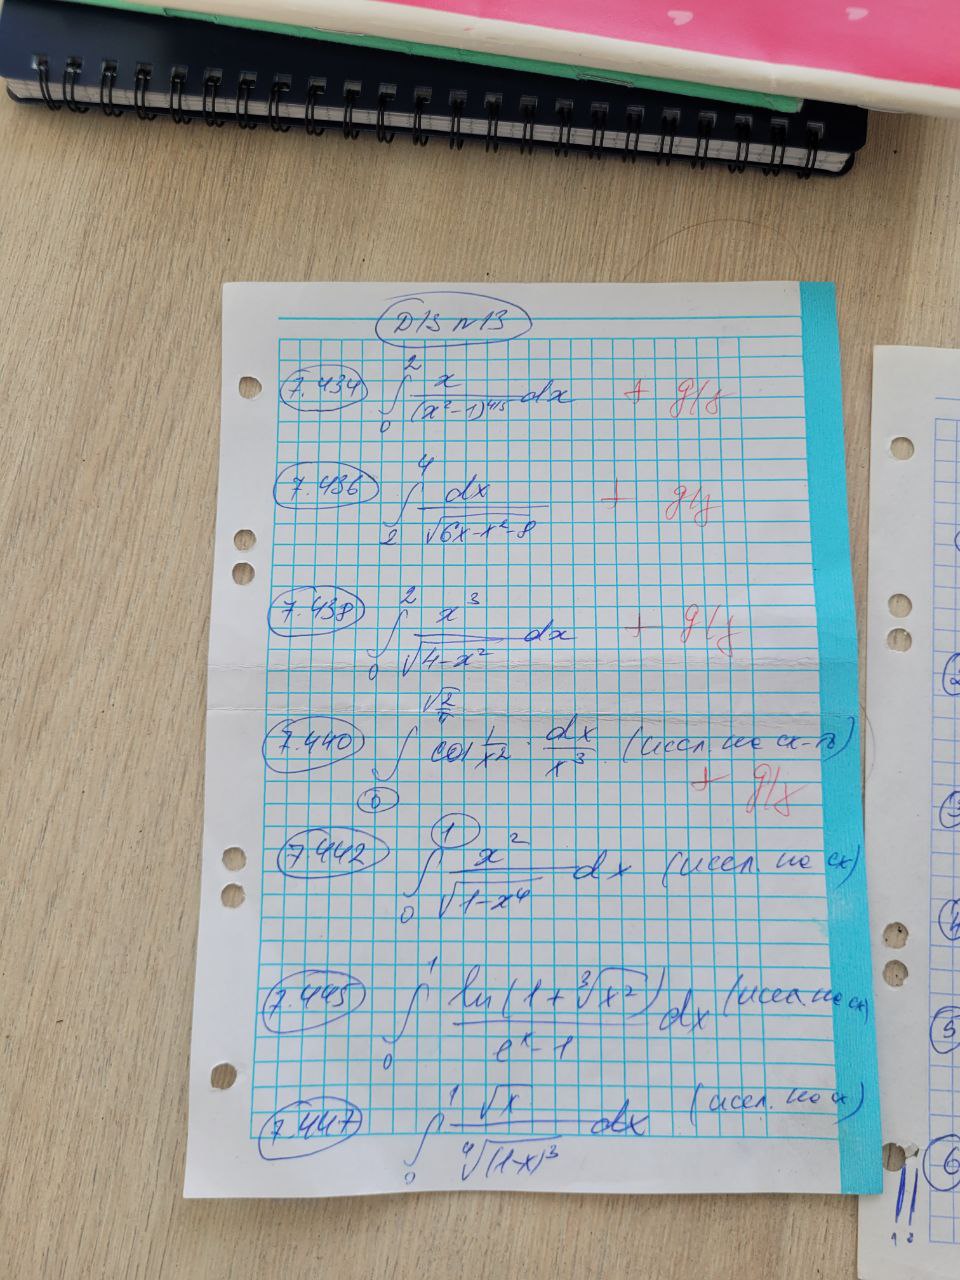 Д/З №13
7.434 ∫₀² x/(x²-1)^(4/5) dx + g/z
7.436 ∫₂⁴ dx/√(6x-x²-8) + g/z
7.438 ∫₀² x³/√(4-x²) dx + g/z
7.440 ∫₀^√(2/π) cos 1/x² · dx/x³ (иссл. на сх-ть)
+ g/z
7.442 ∫₀¹ x²/√(1-x⁴) dx (иссл. на сх)
7.445 ∫₀¹ ln(1+∛(x²))/(eˣ-1) dx (иссл. на сх)
7.447 ∫₀¹ √x/⁴√((1-x)³) dx (иссл. на сх)
2
3
4
5
6
1 2